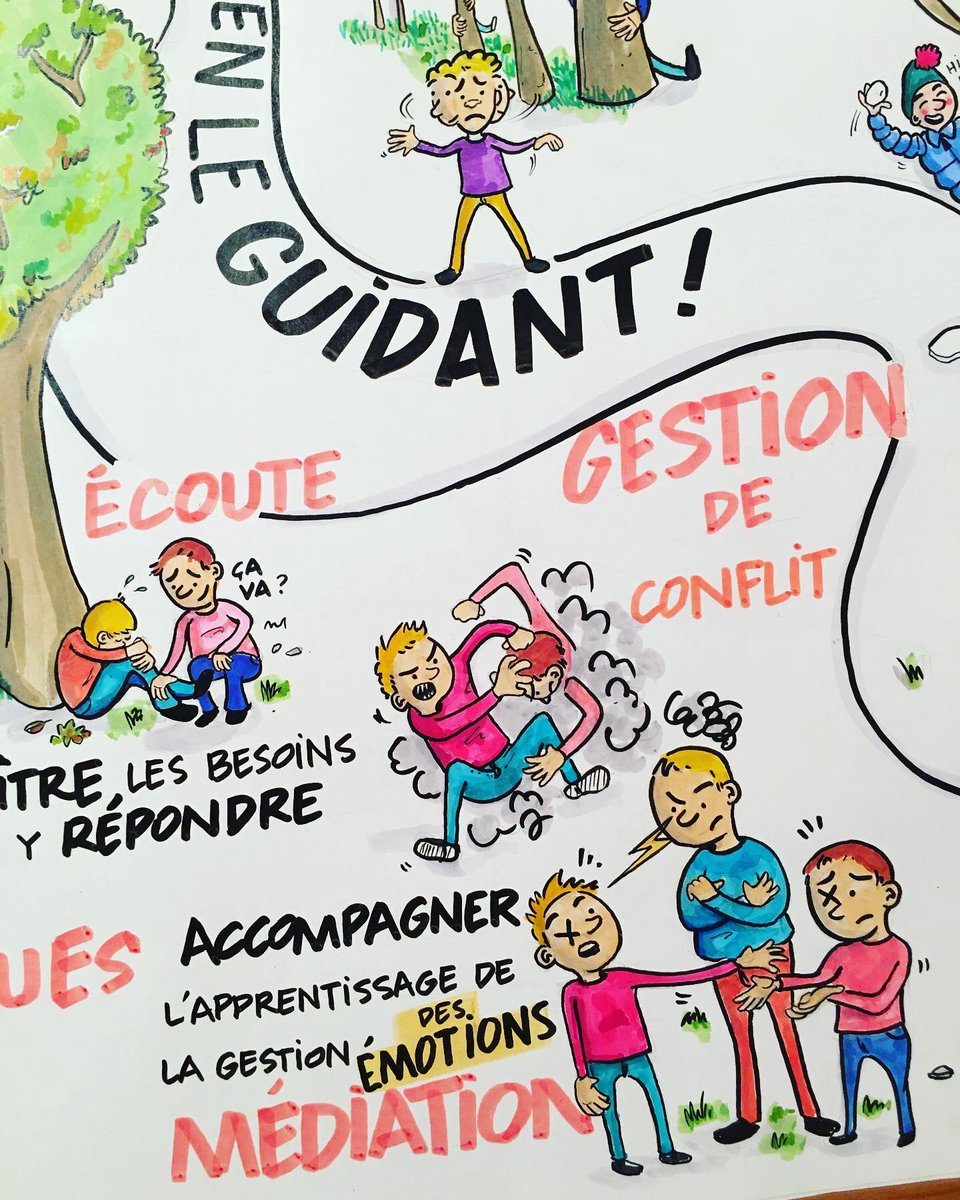 EN LE GUIDANT !
ÉCOUTE
ÇA
VA ?
GESTION
DE
CONFLIT
LES BESOINS
Y RÉPONDRE
ACCOMPAGNER
L'APPRENTISSAGE DE
LA GESTION DES
ÉMOTIONS
MÉDIATION